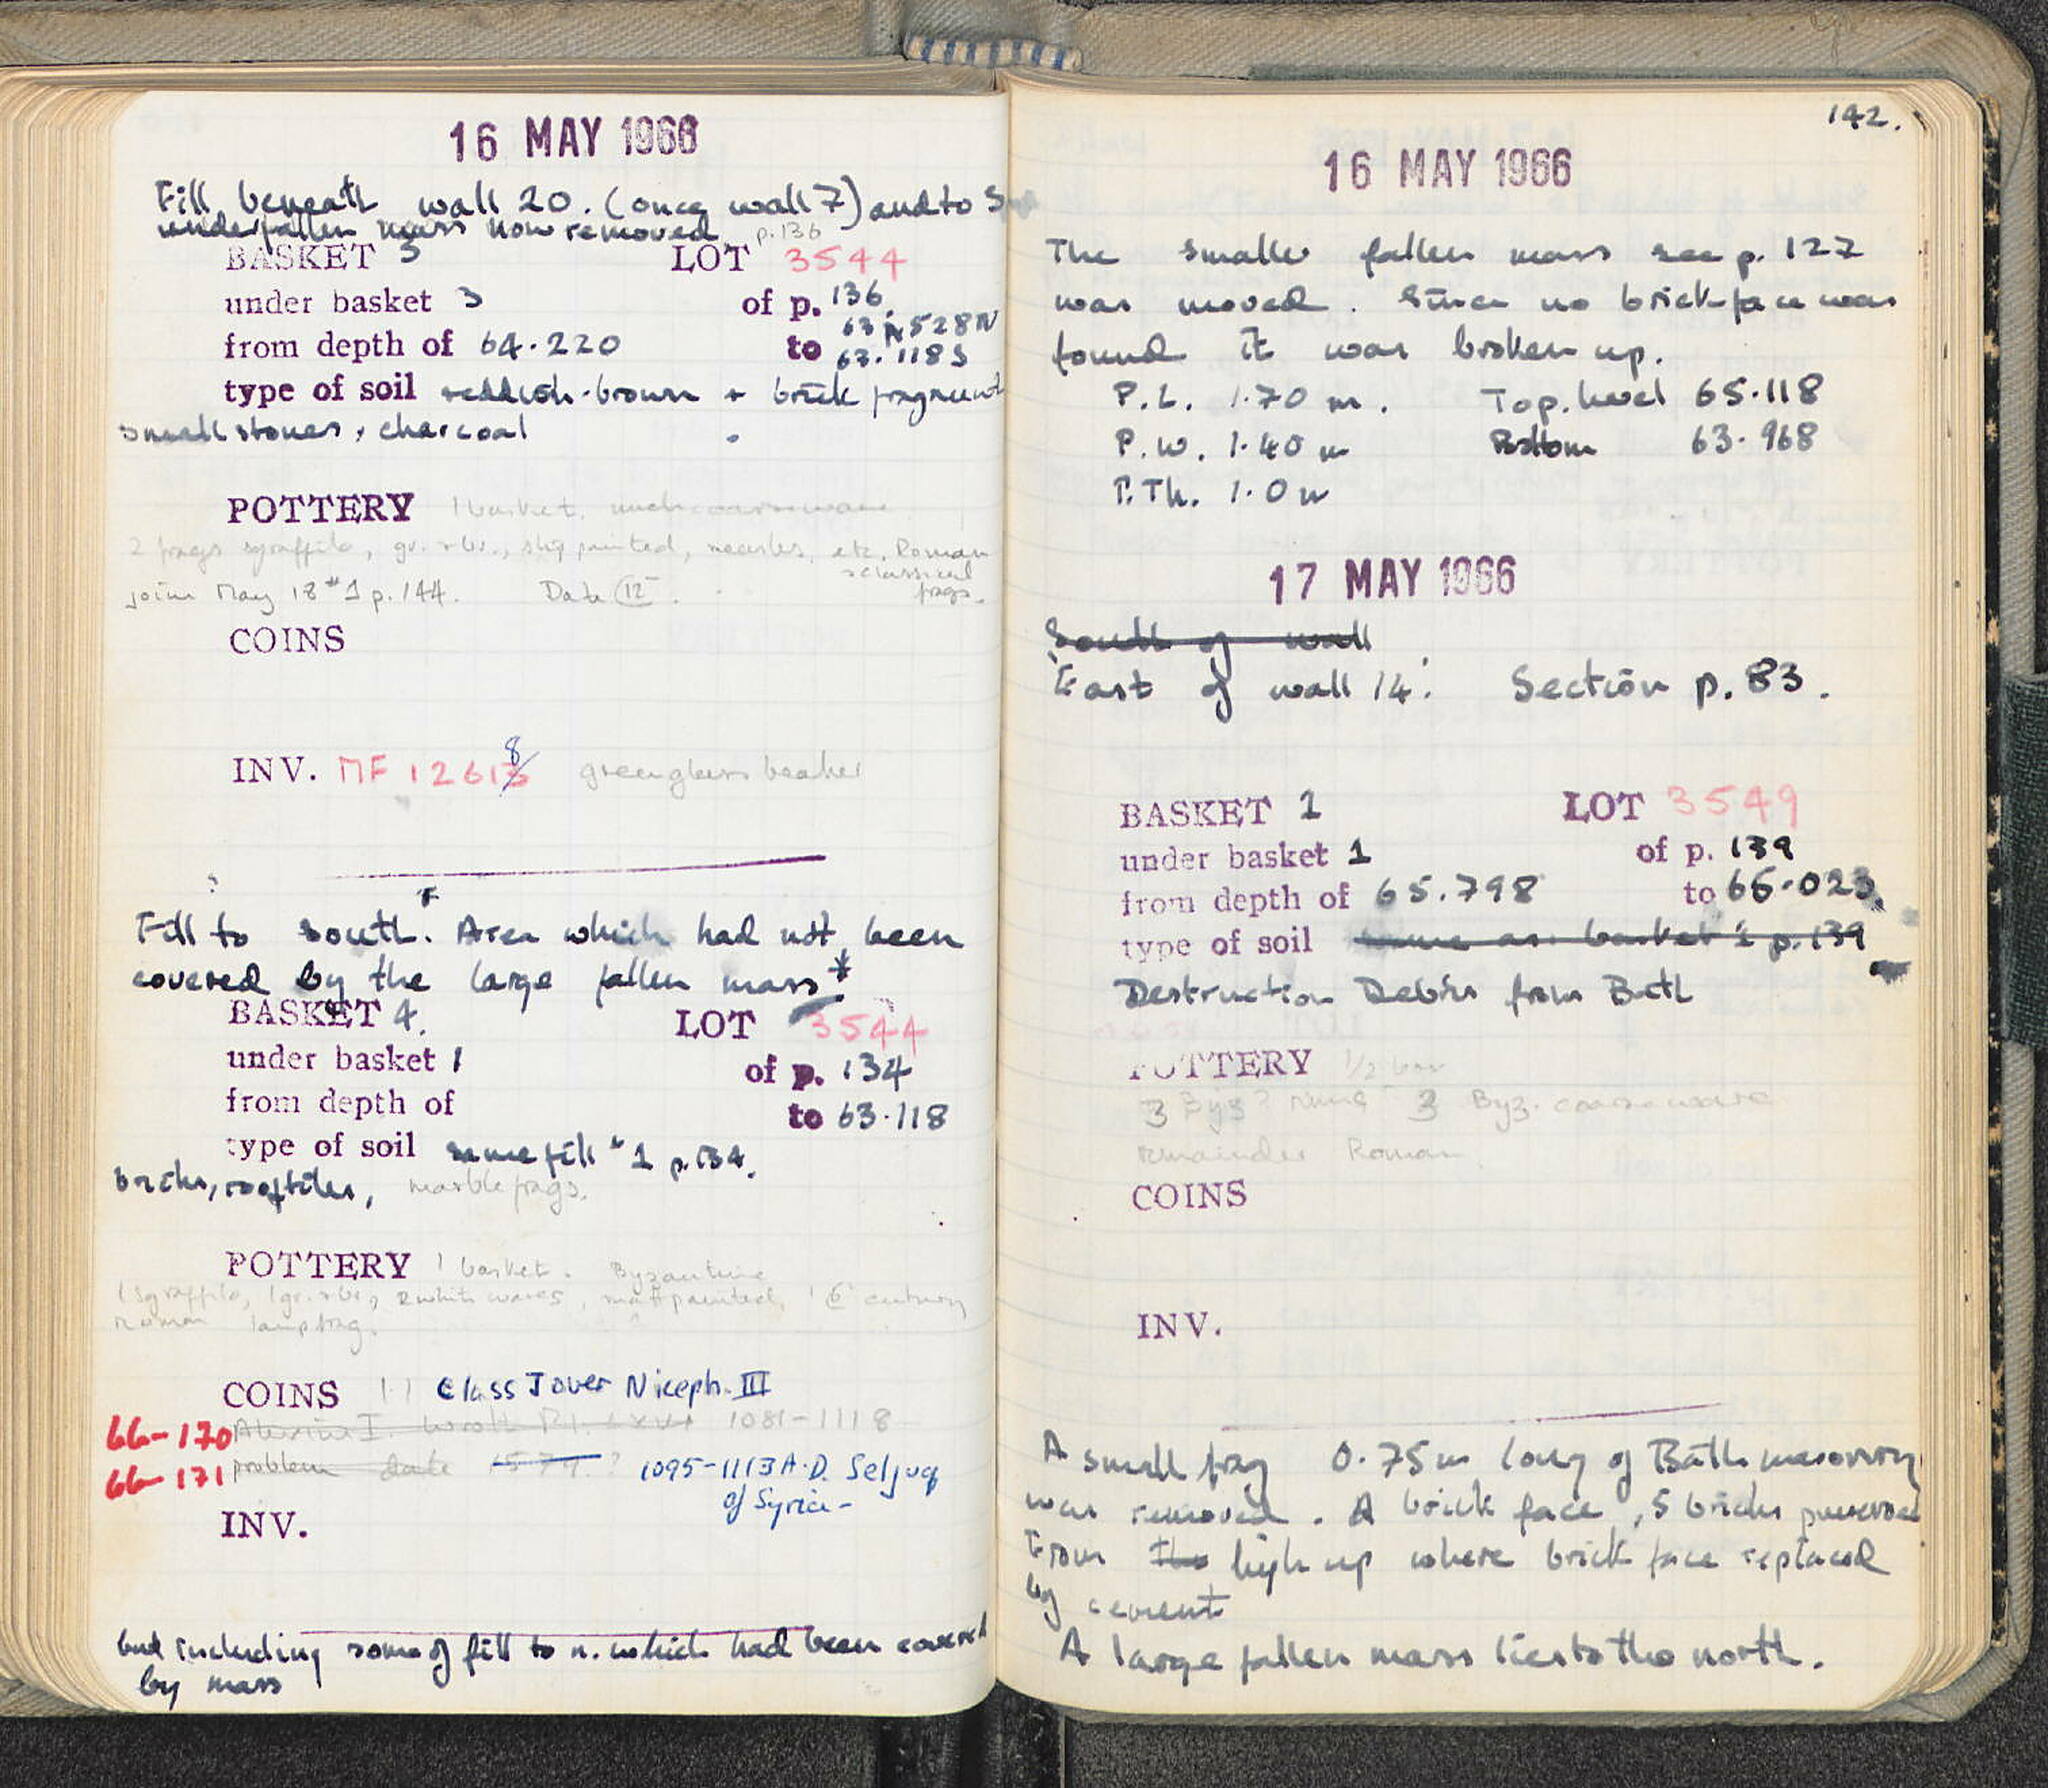 16 MAY 1966
Fill beneath wall 20. (once wall 7) and to S
under fallen mass now removed p. 136
BASKET 3 LOT 3544
under basket 3 of p. 136
63.528N
from depth of 64.220 to 63.118S
type of soil reddish-brown + brick fragments
small stones, charcoal
POTTERY 1 basket. much coarse ware
2 frags sgraffito, gr. + br., slip painted, measles, etc. Roman
+ classical
joins May 18 #1 p. 144. Date 12 frags.
COINS
8
INV. MF 12613 green glass beaker
Fill to south. Area which had not been
covered by the large fallen mass *
BASKET 4. LOT 3544
under basket 1 of p. 134
from depth of to 63.118
type of soil same fill # 1 p. 134.
bricks, rooftiles, marble frags.
POTTERY 1 basket. Byzantine
1 sgraffito, 1 gr. + br., 2 white wares, matt painted, 1 6 century
Roman lamp frag.
COINS Class J over Niceph. III
66-170 Alexius I. Wroth Pl. 1081-1118
66-171 problem date ? 1095-1113 A.D. Seljuq
of Syria-
INV.
but including some of fill to n. which had been covered
by mass
142.
16 MAY 1966
The smaller fallen mass see p. 127
was moved. Since no brick face was
found it was broken up.
P.L. 1.70 m. Top. level 65.118
P.W. 1.40 m Bottom 63.968
P.Th. 1.0 m
17 MAY 1966
South of wall
East of wall 14. Section p. 83.
BASKET 1 LOT 3549
under basket 1 of p. 139
from depth of 65.798 to 65.023
type of soil same as basket 1 p. 139
Destruction Debris from Bath
POTTERY 1/2 box
3 Byz? rims 3 Byz. coarse ware
remainder Roman.
COINS
INV.
A small frag 0.75m long of Bath masonry
was removed. A brick face, 5 bricks preserved
From the high up where brick face replaced
by cement
A large fallen mass lies to the north.